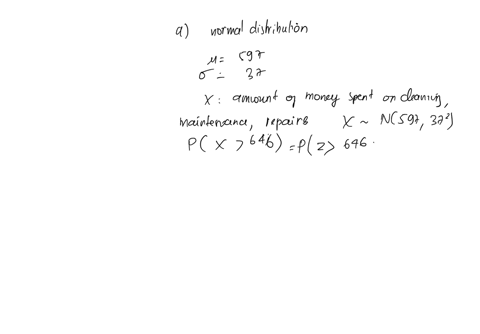 a) normal distribution
μ = 597
σ = 37
X : amount of money spent on cleaning,
maintenance, repairs X ~ N(597, 37²)
P( X > 646) = P( Z > 646 .